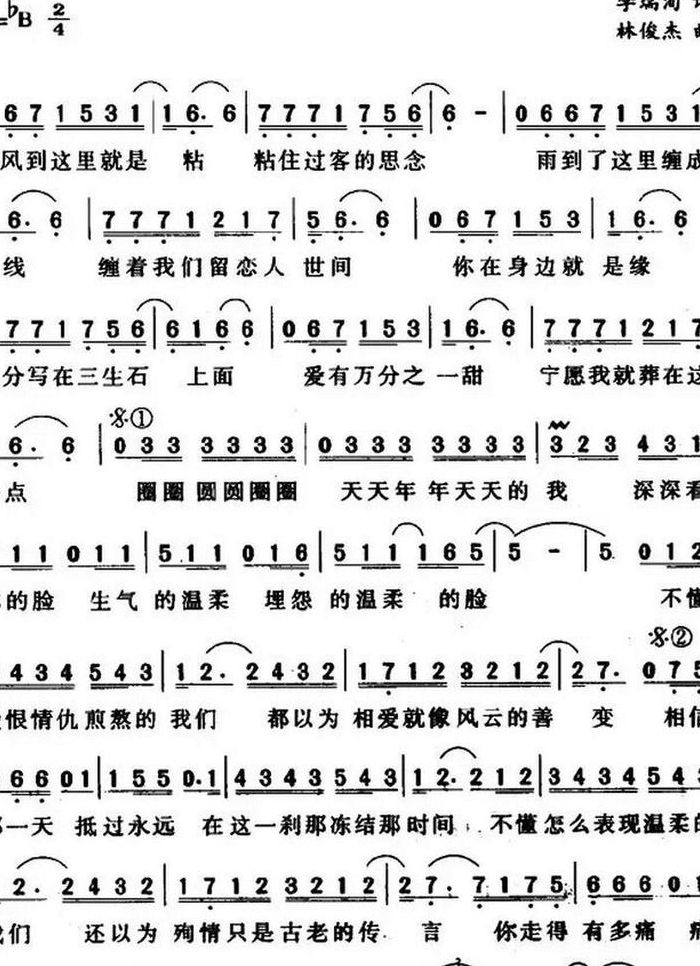 =♭B 2/4
林俊杰
6 7 1 5 3 1 | 1 6. 6 | 7 7 7 1 7 5 6 | 6 - | 0 6 6 7 1 5 3 1
风到这里就是 粘 粘住过客的思念 雨到了这里缠成
6. 6 | 7 7 7 1 2 1 7 | 5 6. 6 | 0 6 7 1 5 3 | 1 6. 6
线 缠着我们留恋人 世间 你在身边就 是缘
7 7 1 7 5 6 | 6 1 6 6 | 0 6 7 1 5 3 | 1 6. 6 | 7 7 7 1 2 1 7
分写在三生石 上面 爱有万分之 一甜 宁愿我就葬在这
6. 6 | 0 3 3 3 3 3 3 | 0 3 3 3 3 3 3 3 | 3 2 3 4 3 1
𝄋①
点 圈圈 圆圆圈圈 天天年 年天天的 我 深深看
1 1 0 1 1 | 5 1 1 0 1 6 | 5 1 1 1 6 5 | 5 - | 5 0 1 2
的脸 生气 的温柔 埋怨 的温柔 的脸 不懂
𝄋②
4 3 4 5 4 3 | 1 2. 2 4 3 2 | 1 7 1 2 3 2 1 2 | 2 7. 0 7 5
恨情仇煎熬的 我们 都以为 相爱就像风云的善 变 相信
6 6 0 1 | 1 5 5 0. 1 | 4 3 4 3 5 4 3 | 1 2. 2 1 2 | 3 4 3 4 5 4 3
一天 抵过永远 在这一刹那冻结那 时间 不懂怎么表现温柔的
2. 2 4 3 2 | 1 7 1 2 3 2 1 2 | 2 7. 7 1 7 5 | 6 6 6 0 1
我们 还以为 殉情只是古老的传 言 你走得 有多痛 痛